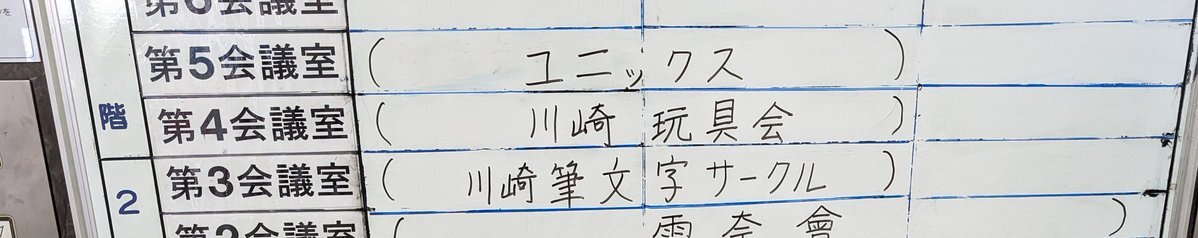 第6会議室
第5会議室 ( ユニックス )
階 第4会議室 ( 川崎 玩具会 )
第3会議室 ( 川崎筆文字サークル )
2 第2会議室 ( 雪奈會 )